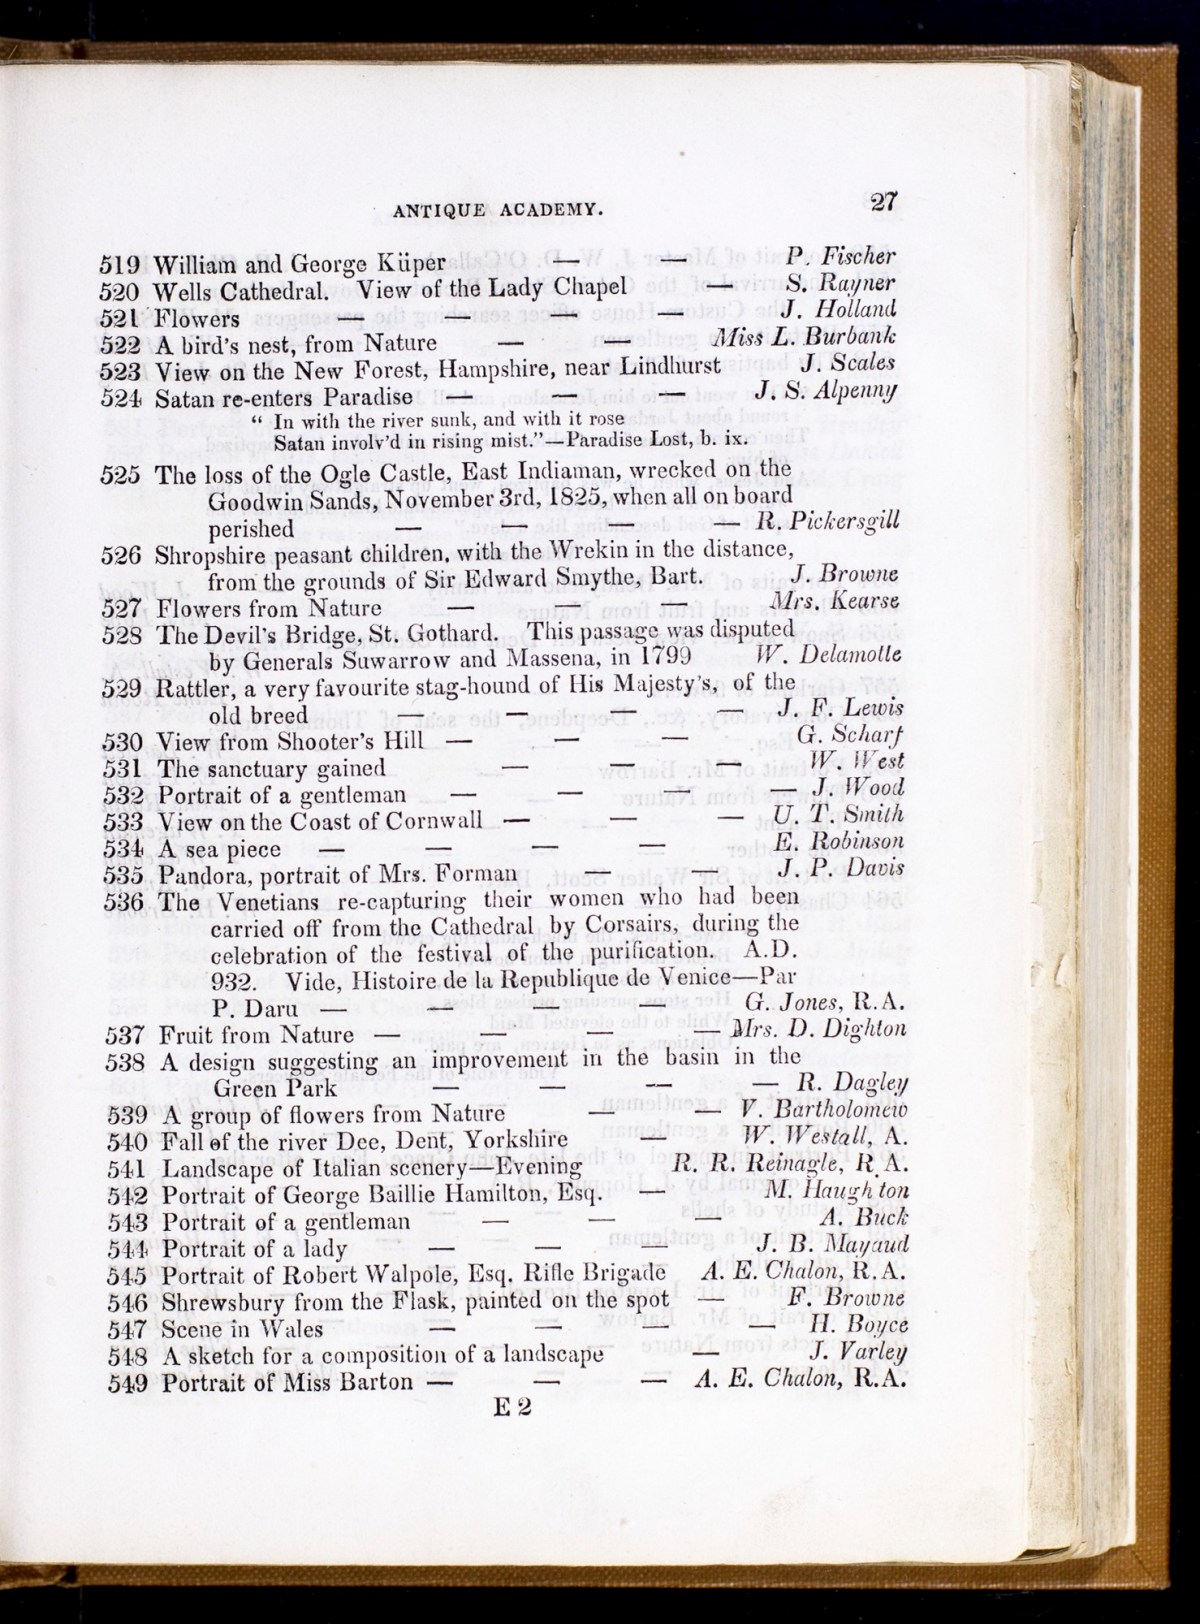 ANTIQUE ACADEMY. 27
519 William and George Küper — — P. Fischer
520 Wells Cathedral. View of the Lady Chapel — S. Rayner
521 Flowers — — — — J. Holland
522 A bird's nest, from Nature — — Miss L. Burbank
523 View on the New Forest, Hampshire, near Lindhurst J. Scales
524 Satan re-enters Paradise — — — J. S. Alpenny
“ In with the river sunk, and with it rose
Satan involv'd in rising mist.”—Paradise Lost, b. ix.
525 The loss of the Ogle Castle, East Indiaman, wrecked on the
Goodwin Sands, November 3rd, 1825, when all on board
perished — — — — R. Pickersgill
526 Shropshire peasant children, with the Wrekin in the distance,
from the grounds of Sir Edward Smythe, Bart. J. Browne
527 Flowers from Nature — — — Mrs. Kearse
528 The Devil's Bridge, St. Gothard. This passage was disputed
by Generals Suwarrow and Massena, in 1799 W. Delamotte
529 Rattler, a very favourite stag-hound of His Majesty's, of the
old breed — — — — J. F. Lewis
530 View from Shooter's Hill — — — G. Scharf
531 The sanctuary gained — — — W. West
532 Portrait of a gentleman — — — — J. Wood
533 View on the Coast of Cornwall — — — U. T. Smith
534 A sea piece — — — — E. Robinson
535 Pandora, portrait of Mrs. Forman — — J. P. Davis
536 The Venetians re-capturing their women who had been
carried off from the Cathedral by Corsairs, during the
celebration of the festival of the purification. A.D.
932. Vide, Histoire de la Republique de Venice—Par
P. Daru — — — — G. Jones, R.A.
537 Fruit from Nature — — — — Mrs. D. Dighton
538 A design suggesting an improvement in the basin in the
Green Park — — — — R. Dagley
539 A group of flowers from Nature — — V. Bartholomew
540 Fall of the river Dee, Dent, Yorkshire — W. Westall, A.
541 Landscape of Italian scenery—Evening R. R. Reinagle, R.A.
542 Portrait of George Baillie Hamilton, Esq. — M. Haughton
543 Portrait of a gentleman — — — A. Buck
544 Portrait of a lady — — — J. B. Mayaud
545 Portrait of Robert Walpole, Esq. Rifle Brigade A. E. Chalon, R.A.
546 Shrewsbury from the Flask, painted on the spot — F. Browne
547 Scene in Wales — — — — H. Boyce
548 A sketch for a composition of a landscape — J. Varley
549 Portrait of Miss Barton — — — A. E. Chalon, R.A.
E 2